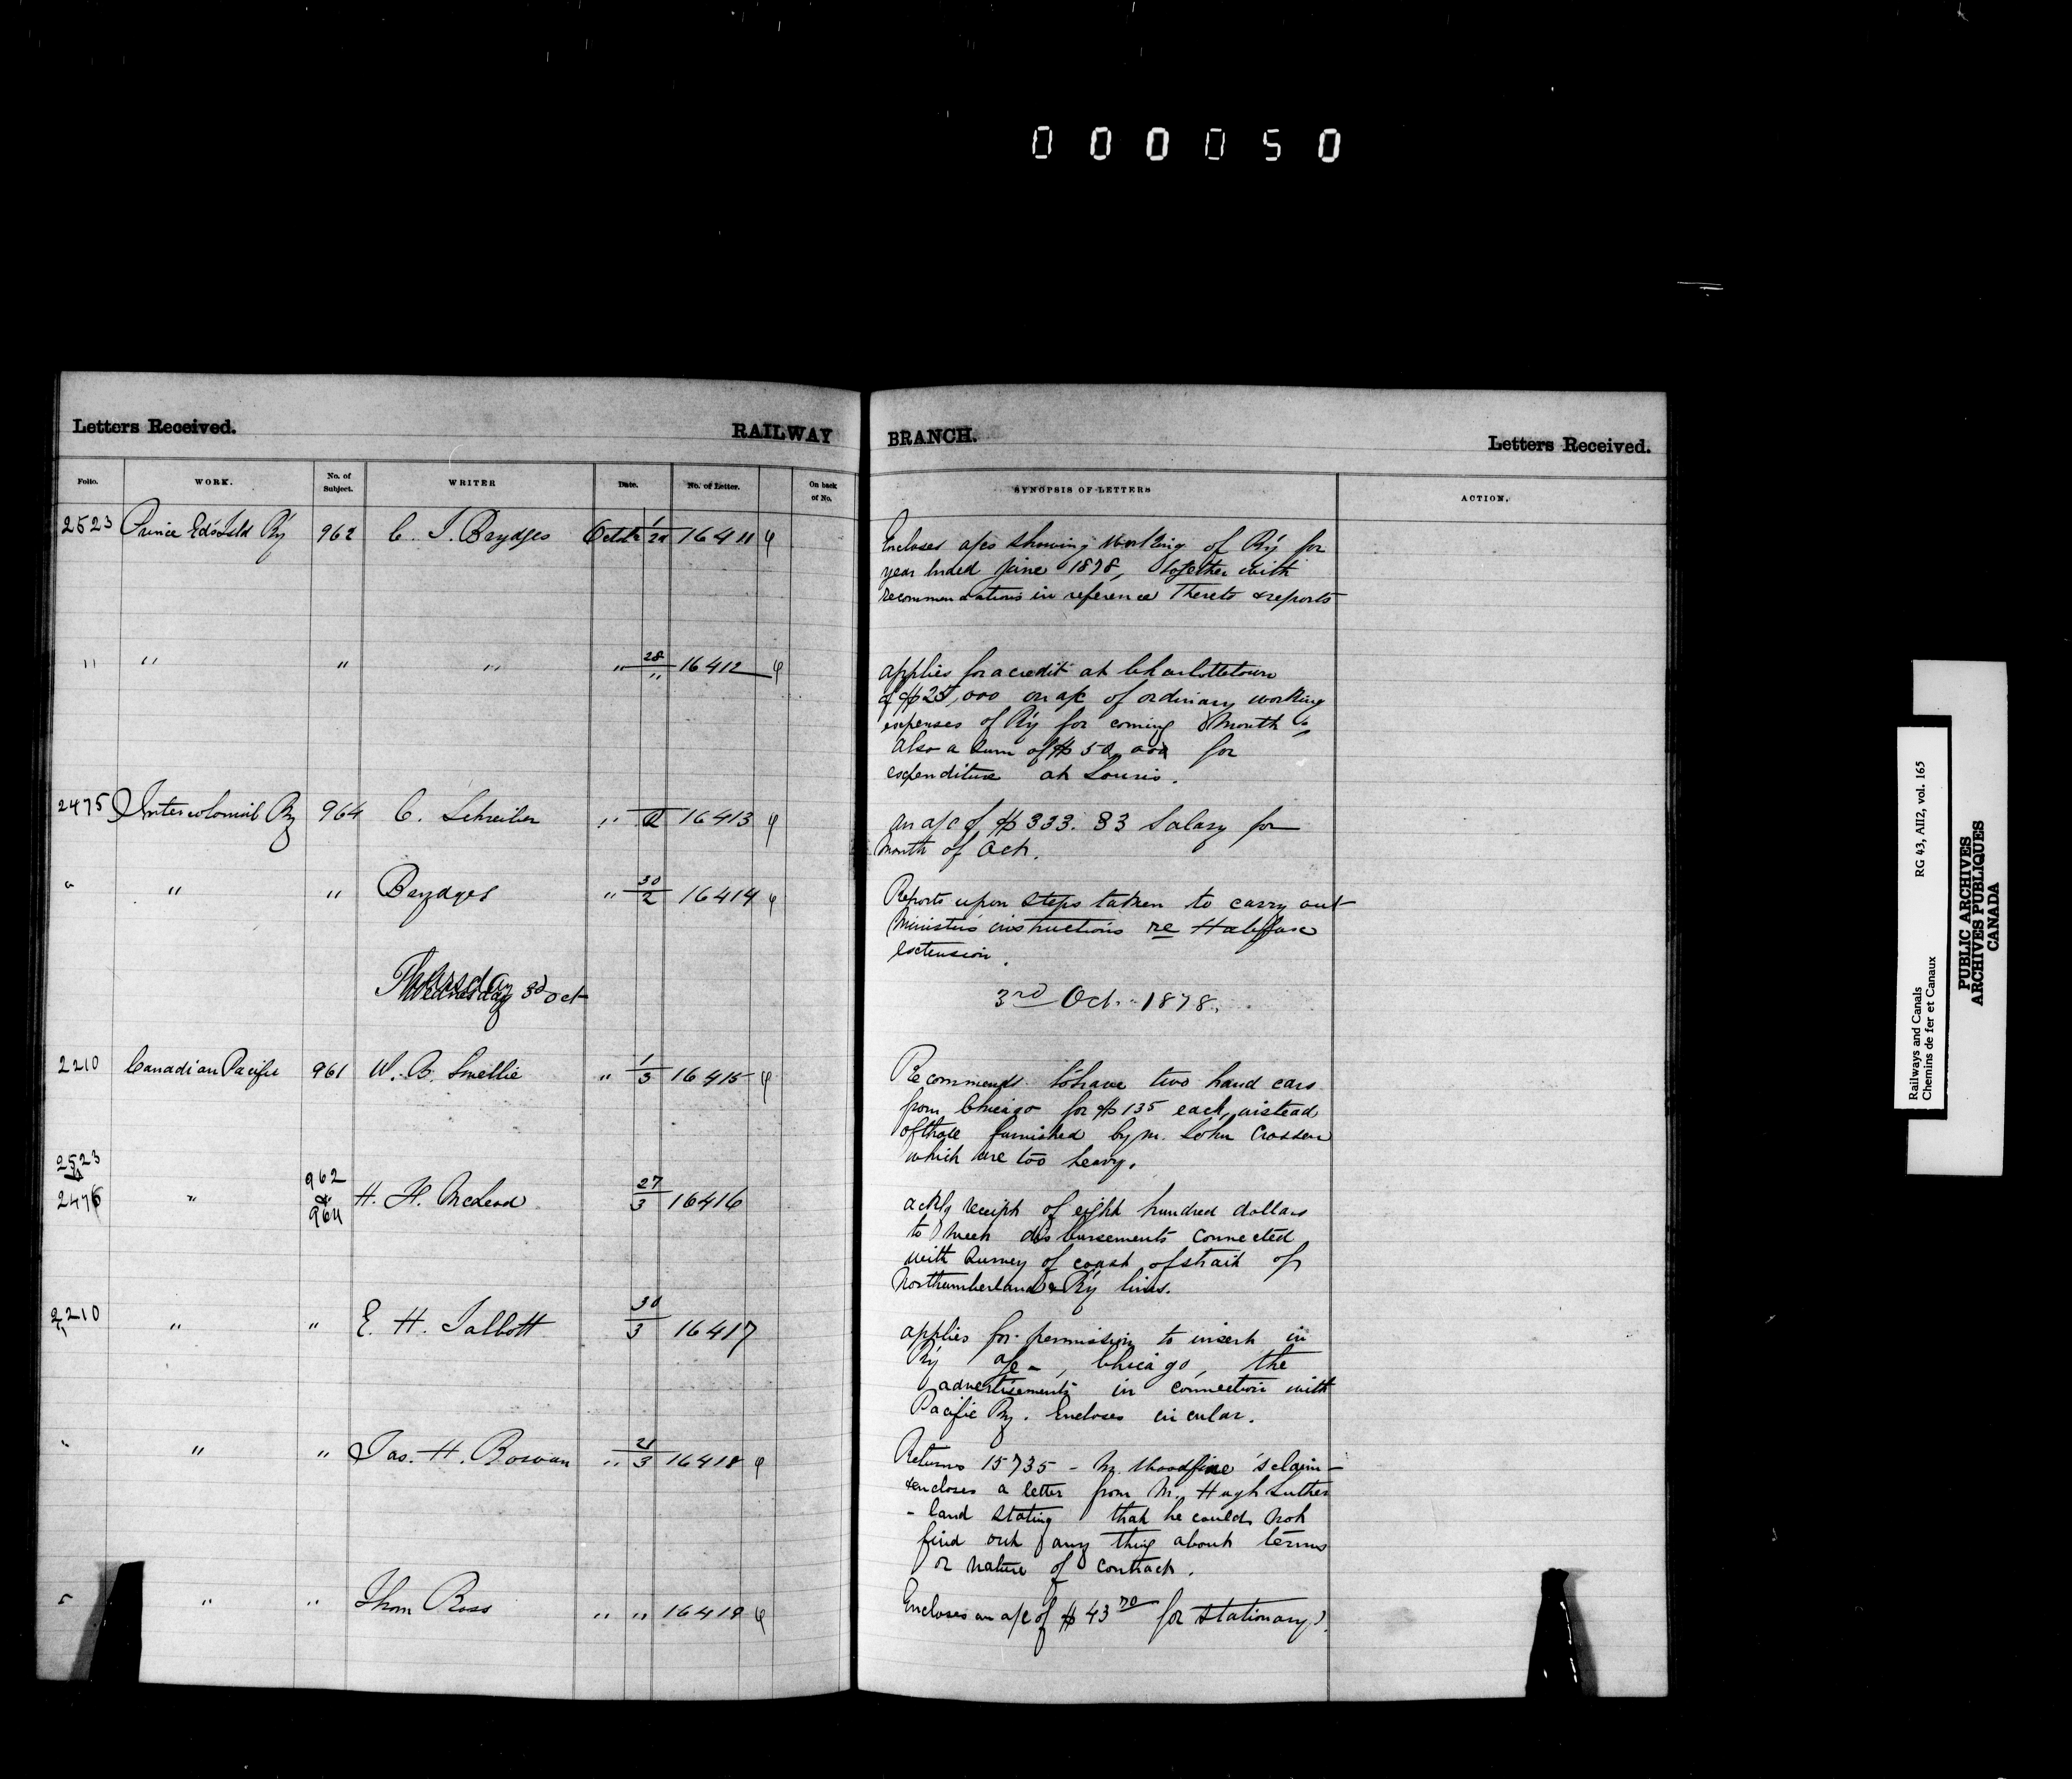 000050
Letters Received. RAILWAY BRANCH. Letters Received.
Folio. WORK. No. of Subject. WRITER Date. No. of Letter. On back of No. SYNOPSIS OF LETTERS ACTION.
2523 Prince Ed's Isld Ry 962 C. J. Brydges Octob 1/2d 16411 φ
Encloses a/cs showing working of Ry for
year ended June 1878, together with
recommendations in reference Thereto & reports
" " " " " 28/" 16412 φ
applies for a credit at Charlottetown
of $25,000 on a/c of ordinary working
expenses of Ry for coming month &
also a sum of $50,000 for
expenditure at Souris.
2475 Intercolonial Ry 964 C. Schreiber " 2 16413 φ
an a/c of $333.33 Salary for
Month of Oct.
" " " Brydges " 30/2 16414 φ
Reports upon steps taken to carry out
Minister's instructions re Halifax
extension.
Thursday 3d Oct
3rd Oct. 1878.
2210 Canadian Pacific 961 W. B. Smellie " 1/3 16415 φ
Recommends to have two hand cars
from Chicago for $135 each, instead
of those furnished by Mr. John Crossen
which are too heavy.
2523 & 2476 " 962 & 964 H. H. McLeod 27/3 16416
ackg receipt of eight hundred dollars
to meet disbursements connected
with Survey of coast of strait of
Northumberland & Ry lines.
2210 " " E. H. Talbott 30/3 16417
applies for permission to insert in
Ry age, Chicago, the
advertisements in connection with
Pacific Ry. Encloses circular.
" " " Jas. H. Rowan " 21/3 16418 φ
Returns 15735 - Mr. Woodfine's claim -
& encloses a letter from Mr. Hugh Suther
- land stating that he could not
find out any thing about terms
or nature of contract.
" " " Thom Ross " " 16419 φ
Encloses an a/c of $43 70 for Stationary.
Railways and Canals
Chemins de fer et Canaux
RG 43, AII2, vol. 165
PUBLIC ARCHIVES
ARCHIVES PUBLIQUES
CANADA